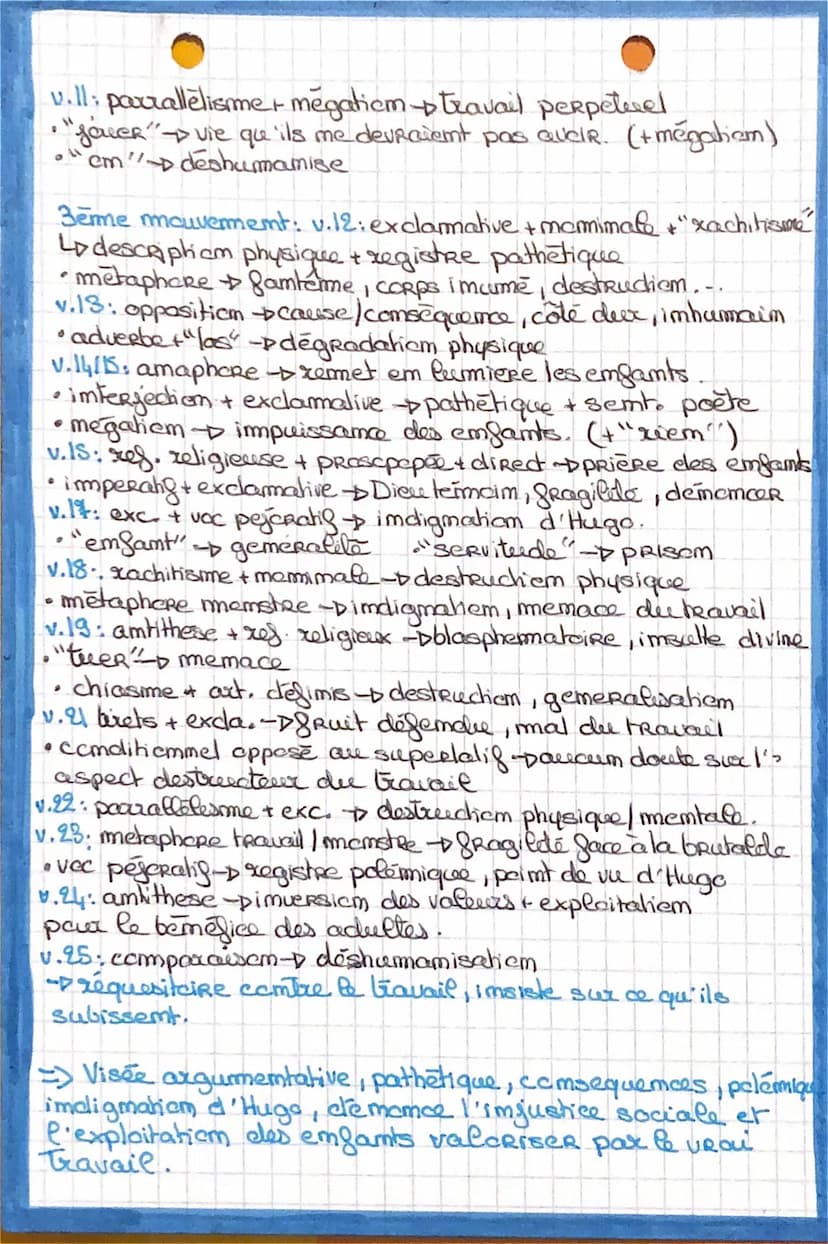 v.11: parrallélisme + négation → travail perpetuel
• "jouer" → vie qu'ils ne devraient pas avoir. (+ négation)
• "on" → déshumanise
3ème mouvement: v.12: exclamative + nominale + "rachitisme"
↳ description physique + registre pathétique
• métaphore → fantôme, corps inumé, destruction...
v.13: opposition → cause/conséquence, côté dur, inhumain
• adverbe + "las" → dégradation physique
v.14/15: anaphore → remet en lumiere les enfants.
• interjection + exclamative → pathétique + sent. poète
• négation → impuissance des enfants. (+ "rien")
v.15: ref. religieuse + prosopopée + direct → prière des enfants
• imperatif + exclamative → Dieu témoin, fragilité, dénoncer
v.17: exc. + voc pejoratif → indignation d'Hugo.
• "enfant" → generalité • "servitude" → prison
v.18: rachitisme + nominale → destruction physique
• métaphore monstre → indignation, menace du travail
v.19: antithese + ref. religieux → blasphematoire, insulte divine
• "tuer" → menace
• chiasme + art. définis → destruction, generalisation
v.21 tirets + excla. → fruit défendu, mal du travail
• conditionnel opposé au superlatif → aucun doute sur l'
aspect destructeur du travail
v.22: parallélisme + exc. → destruction physique/mentale.
v.23: metaphore travail/monstre → fragilité face à la brutalité
• voc péjoratif → registre polémique, point de vu d'Hugo
v.24: antithese → inversion des valeurs + exploitation
pour le bénéfice des adultes.
v.25: comparaison → déshumanisation
→ réquisitoire contre le travail, insiste sur ce qu'ils
subissent.
=> Visée argumentative, pathétique, consequences, polémique
indignation d'Hugo, dénonce l'injustice sociale et
l'exploitation des enfants valoriser par le vrai
travail.